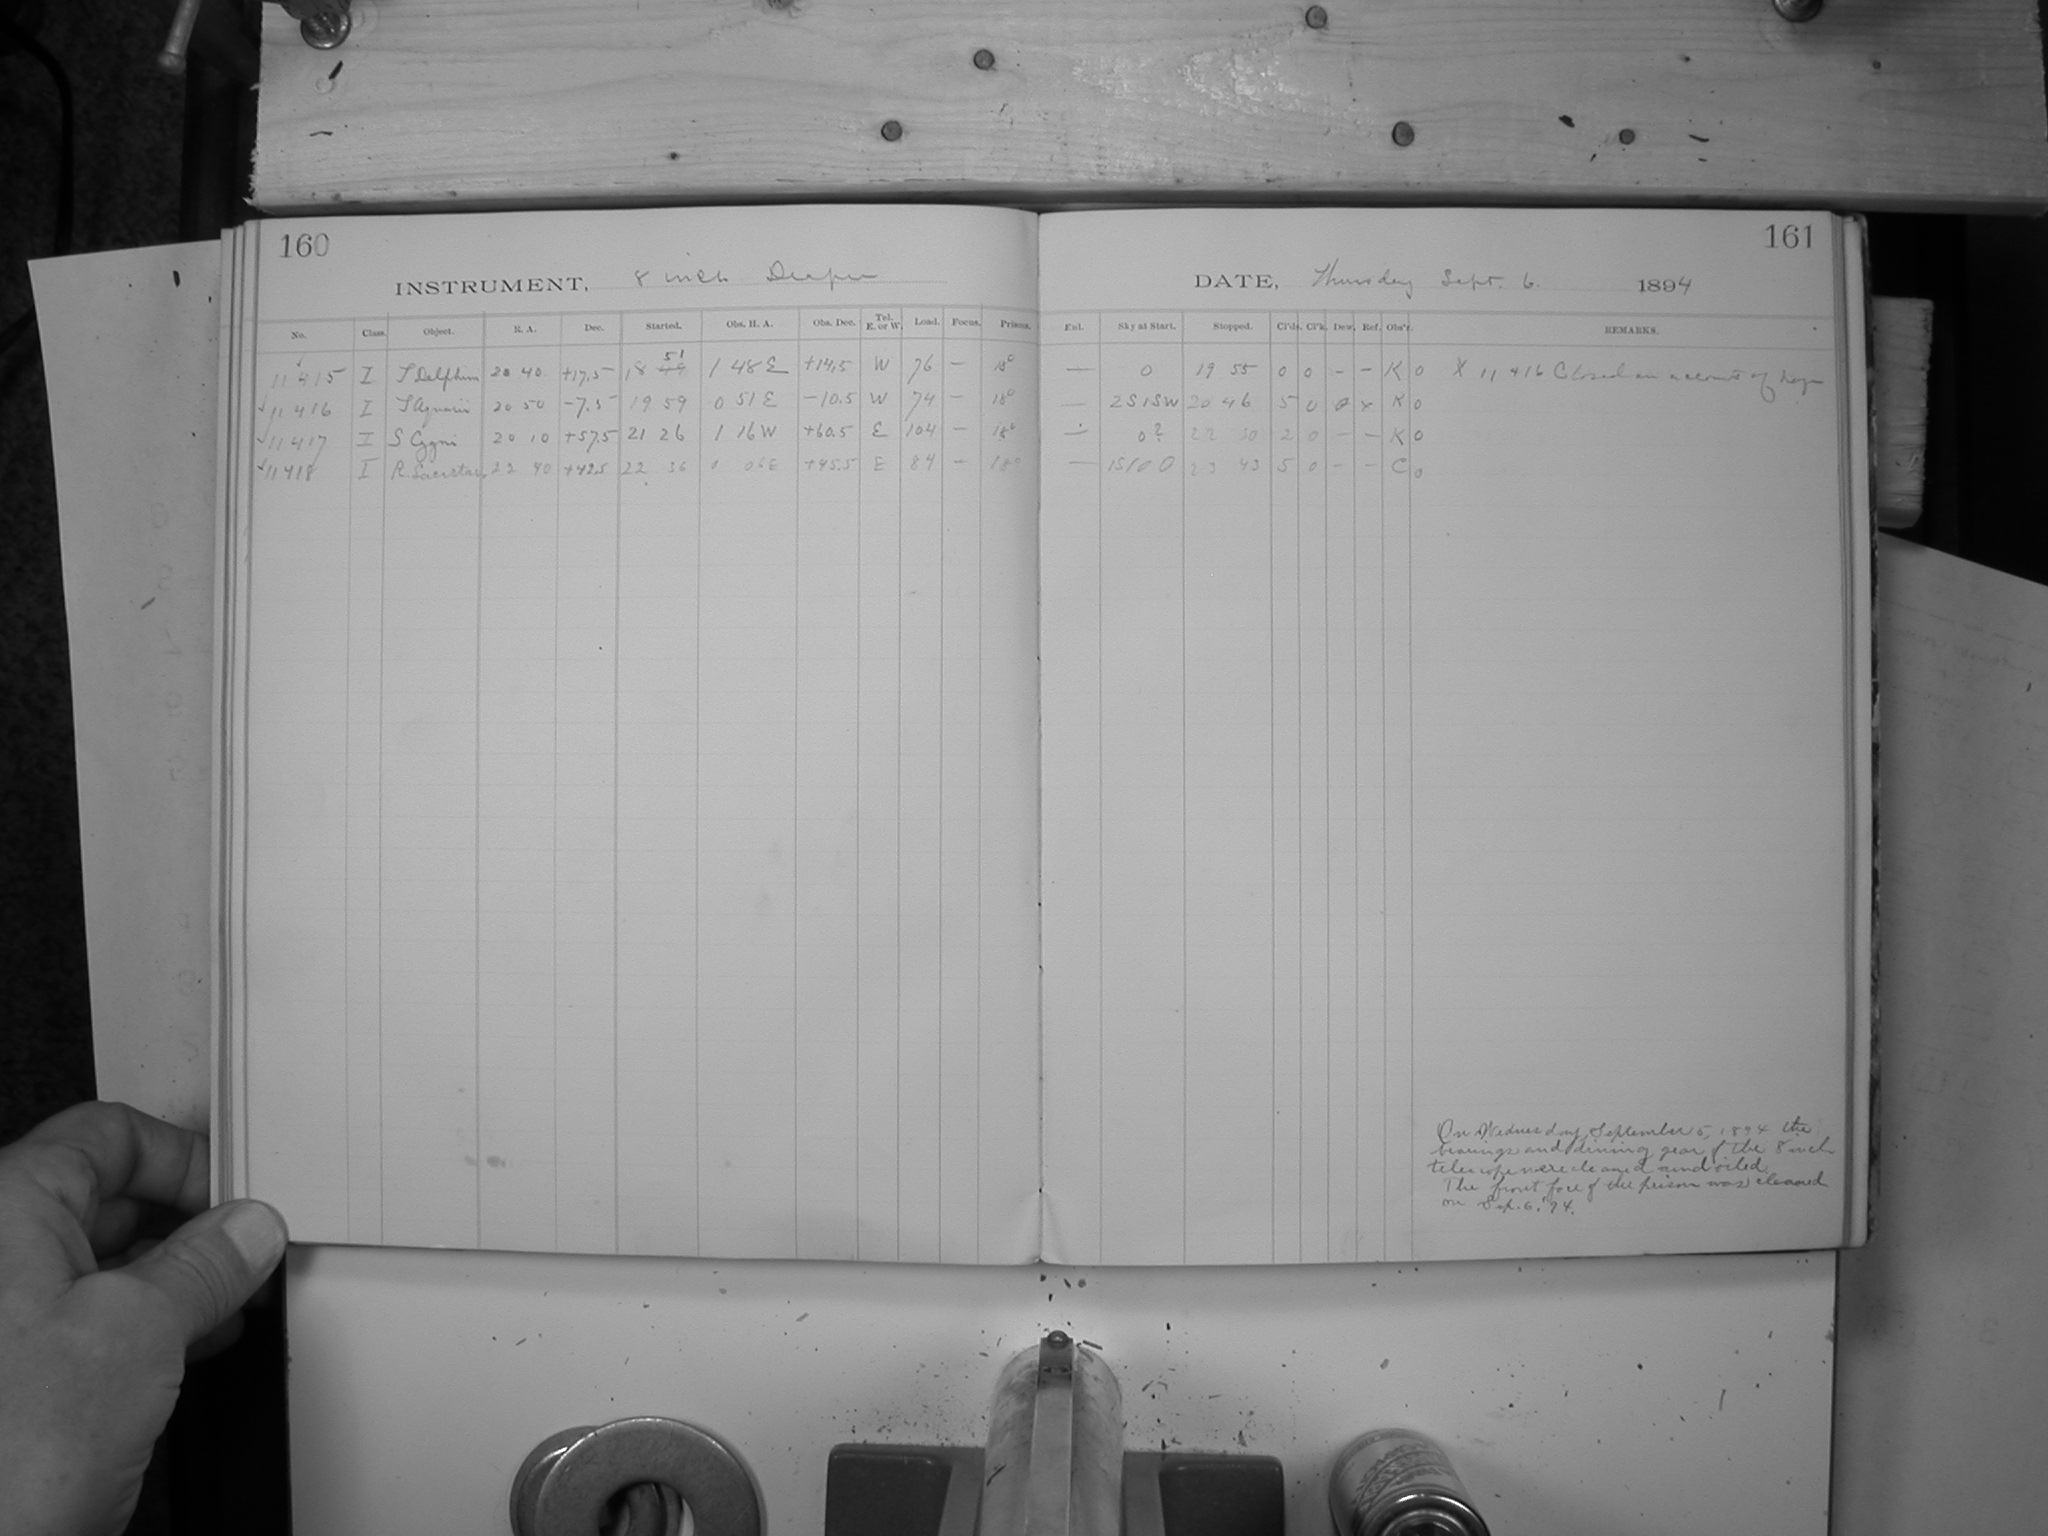 160
INSTRUMENT, 8 inch Draper
No. Class. Object. R. A. Dec. Started. Obs. H. A. Obs. Dec. Tel. E. or W. Load. Focus. Prisms.
11415 I T Delphini 20 40 +17.5 18 49 51 1 48 E +14.5 W 76 — 18°
11416 I T Aquarii 20 50 -7.5 19 59 0 51 E -10.5 W 74 — 18°
11417 I S Cygni 20 10 +57.5 21 26 1 16 W +60.5 E 104 — 18°
11418 I R Lacertae 22 40 +42.5 22 36 0 06 E +45.5 E 84 — 18°
161
DATE, Thursday Sept. 6. 1894
Enl. Sky at Start. Stopped. Cl'ds. Cl'k. Dew. Ref. Obs'r. REMARKS.
— 0 19 55 0 0 – – K 0 X 11416 Closed on account of
— 2S1SW 20 46 5 0 0 x K 0
— 0? 22 30 2 0 – – K 0
— 1S100 23 43 5 0 – – C 0
On Wednesday, September 5, 1894 the
bearings and driving gear of the 8 inch
telescope were cleaned and oiled.
The front face of the prism was cleaned
on Sep. 6, '94.